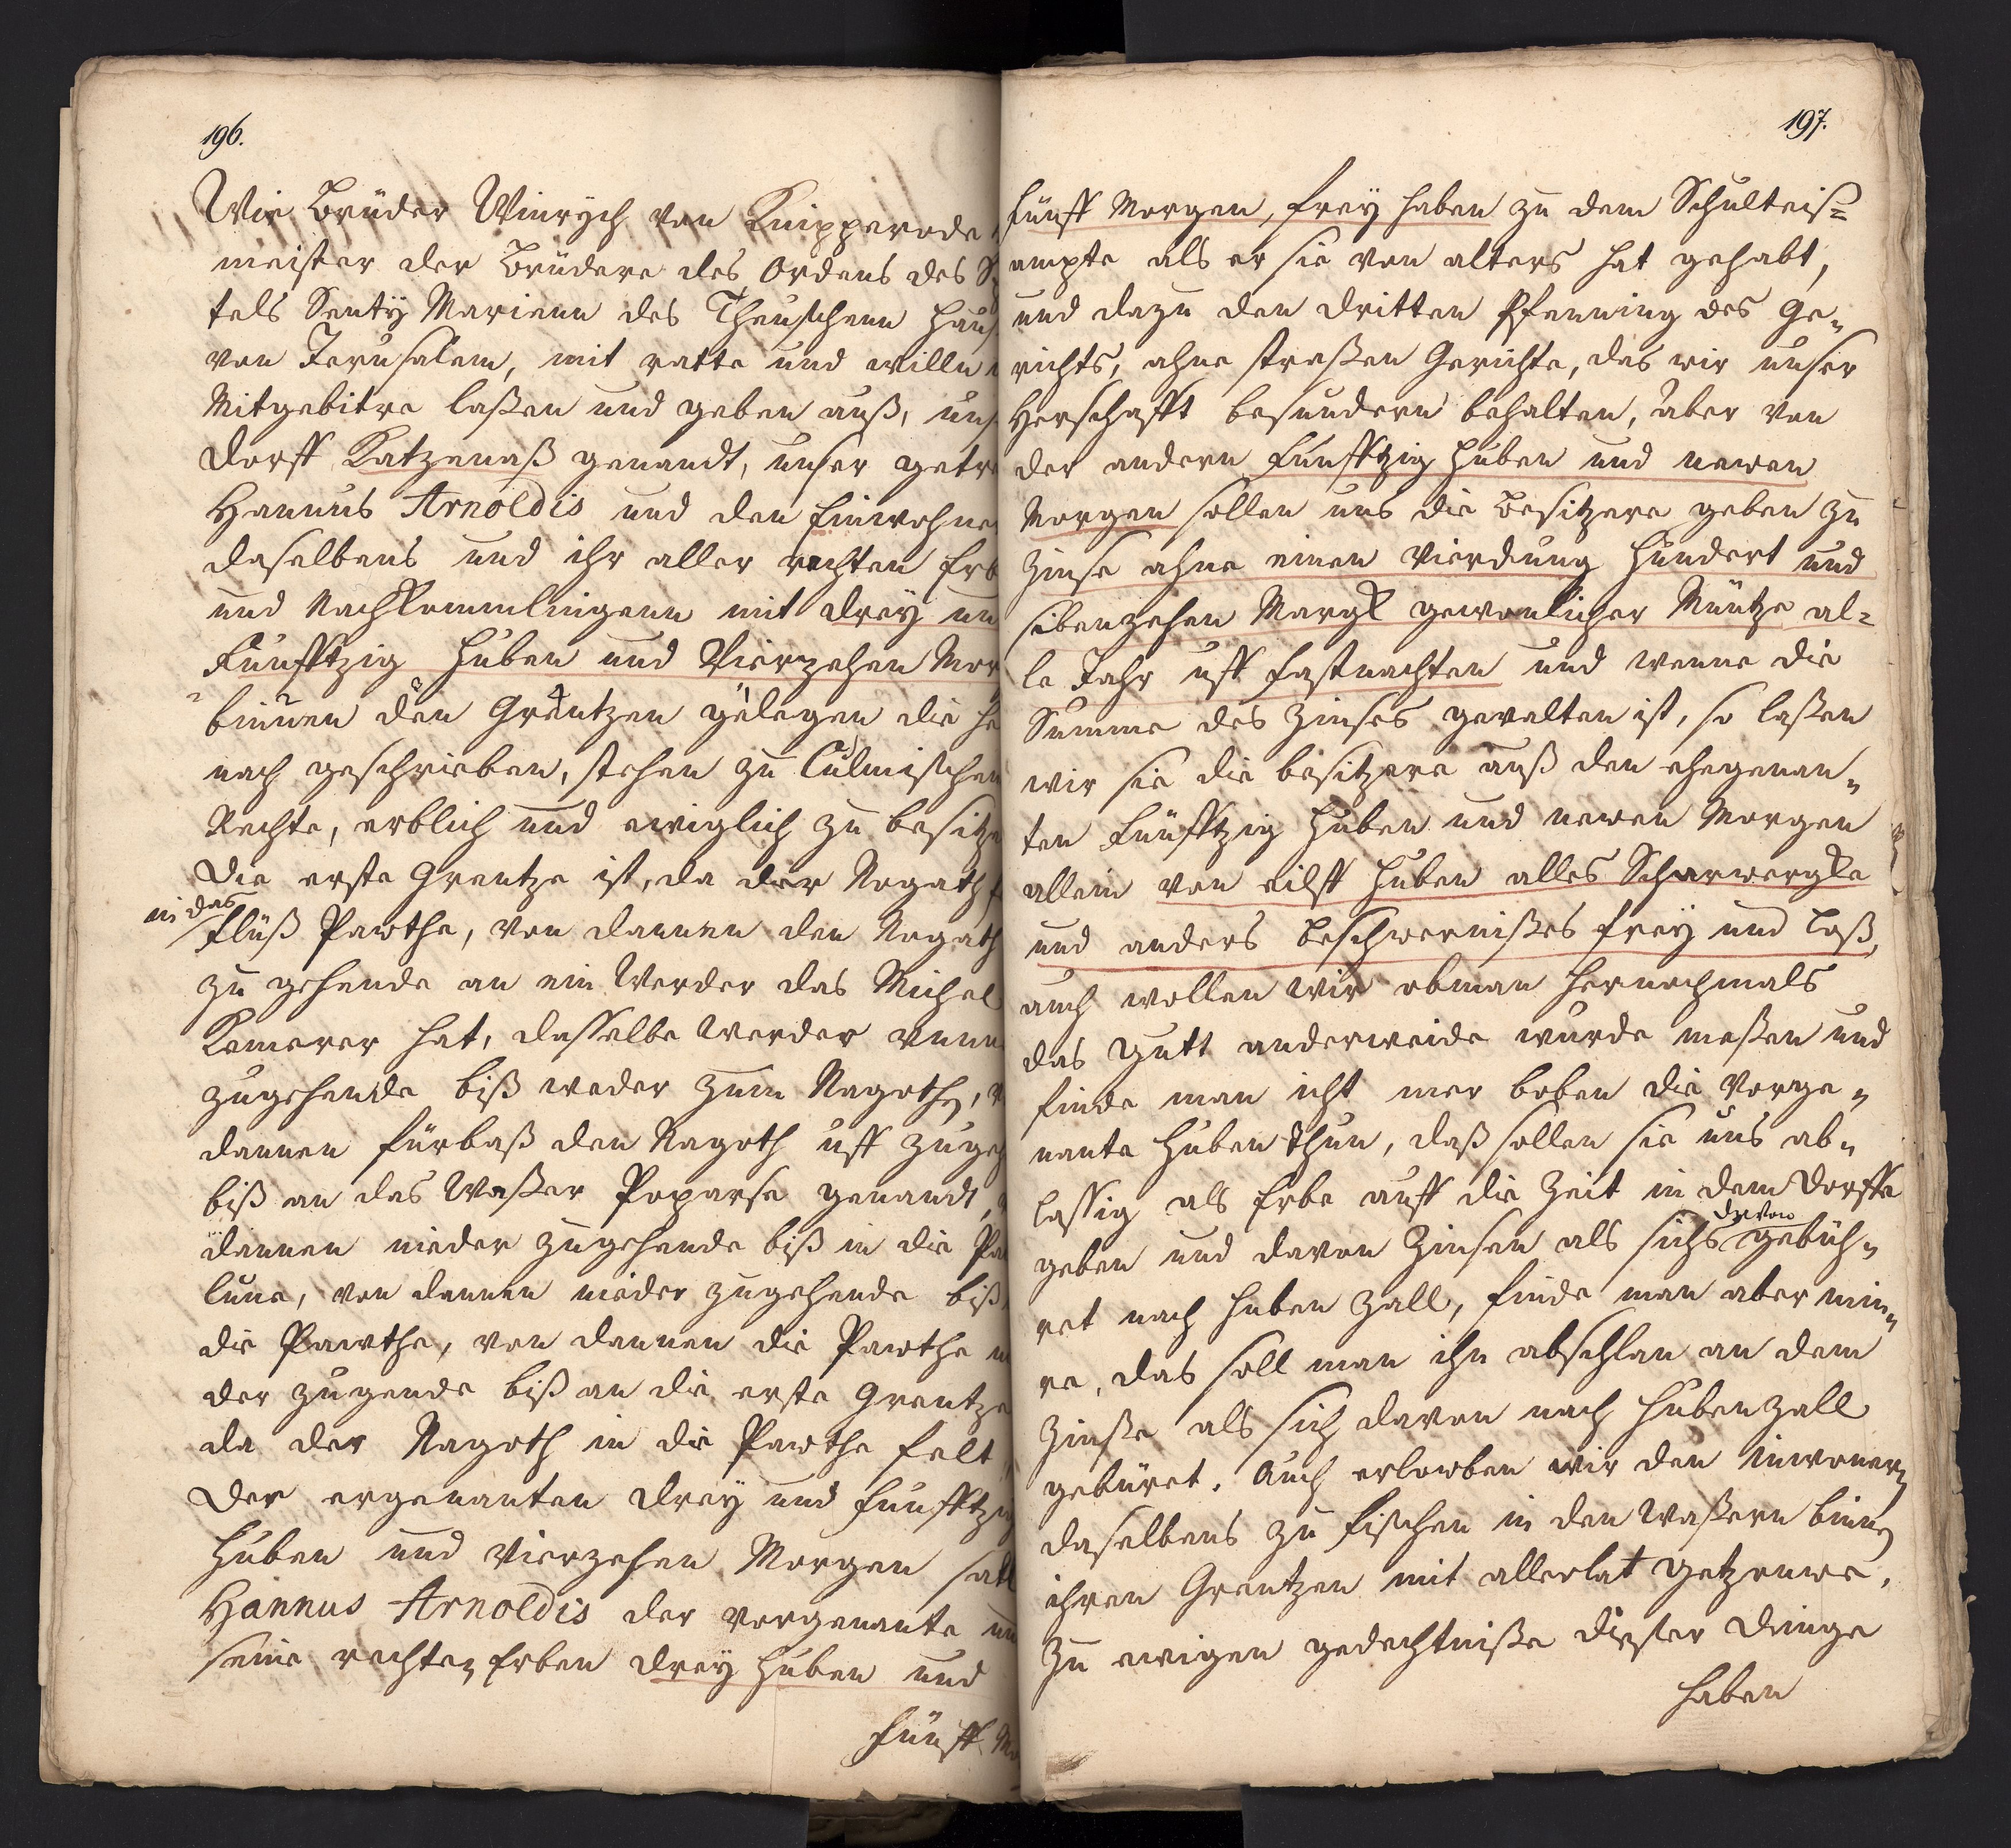 196.
Wir Brüder Winrÿch von Knipperode
meister der Brüdere des Ordens des
tels Sentÿ Marienn des Theuschenn Hauß
von Jerusalem, mit ratte und willn
Mitgebitre laßen und geben auß, uns
Dorff Katzenaß genandt, unser getre
Hannus Arnoldis und den Einwohner
daselbens und ihr aller rechten Erb
und Nachkommlingenn mit dreÿ un
Fünfftzig Huben und Vierzehen Mor
binnen den Grentzen gelegen die he
nach geschrieben, stehen zu Culmischen
Rechte, erblich und ewiglich zu besitze
Die erste Grentze ist, da der Nogath
in das
fluß Pawthe, von dannen den Nogath
zu gehende an ein Werder das Michel
Kemerer hat, dasselbe Werder umm
zugehende biß weder zum Nagothe,
dannen fürbaß den Nagoth uff zugeh
biß an das Waßer Poparse genandt,
dannen nieder zugehende biß in die Pa
lune, von dannen nieder zugehende biß
die Pawthe, von dannen die Pawthe ni
der zugende biß an die erste Grentze
da der Nagoth in die Pawthe felt
Der ergenanten dreÿ und funfftzig
Huben und Vierzehen Morgen sall
Hannus Arnoldis der vorgenante und
seine rechten Erben dreÿ Huben und
fünff Mo
197.
fünff Morgen, freÿ haben zu dem Schulteis=
ampte als er sie von alters hat gehabt,
und dazu den dritten Pfenning des Ge=
richts, ahne straßen Gerichte, das wir unser
Herschafft besundern behalten, Aber von
der andern Funfftzig Huben und newen
Morgen sollen uns die Besitzere geben zu
Zinse ahne einen Vierdung Hundert und
sibenzehen Margk gewonlicher Müntze al=
le Jahr uff Fastnachten und wenne die
Summe des Zinses gevalten ist, so laßen
wir sie die besitzere auß den ehegenan=
ten Fünfftzig Huben und newen Morgen
allein von eilff Huben alles Scharwergks
und anders Beschwernißes freÿ und loß,
auch wollen wir obman hernochmals
das gutt anderweide wurde meßen und
finde man icht mer boben die vorge=
nante Huben thun, daß sollen sie uns ab=
lossig als Erbe auff die Zeit in dem Dorffe
geben und davon Zinsen als sichs davon gebüh=
ret nach Huben Zall, finde man aber min=
re, das soll man ihn abschlan an dem
Zinße als sich davon nach Hubenzall
gebüret. Auch erlowben wir den Inwonern
daselbens zu fischen in den Waßern binnen
ihren Grentzen mit allerlat getzeuwe,
Zu ewigen gedechtniße dießer Dinge
haben